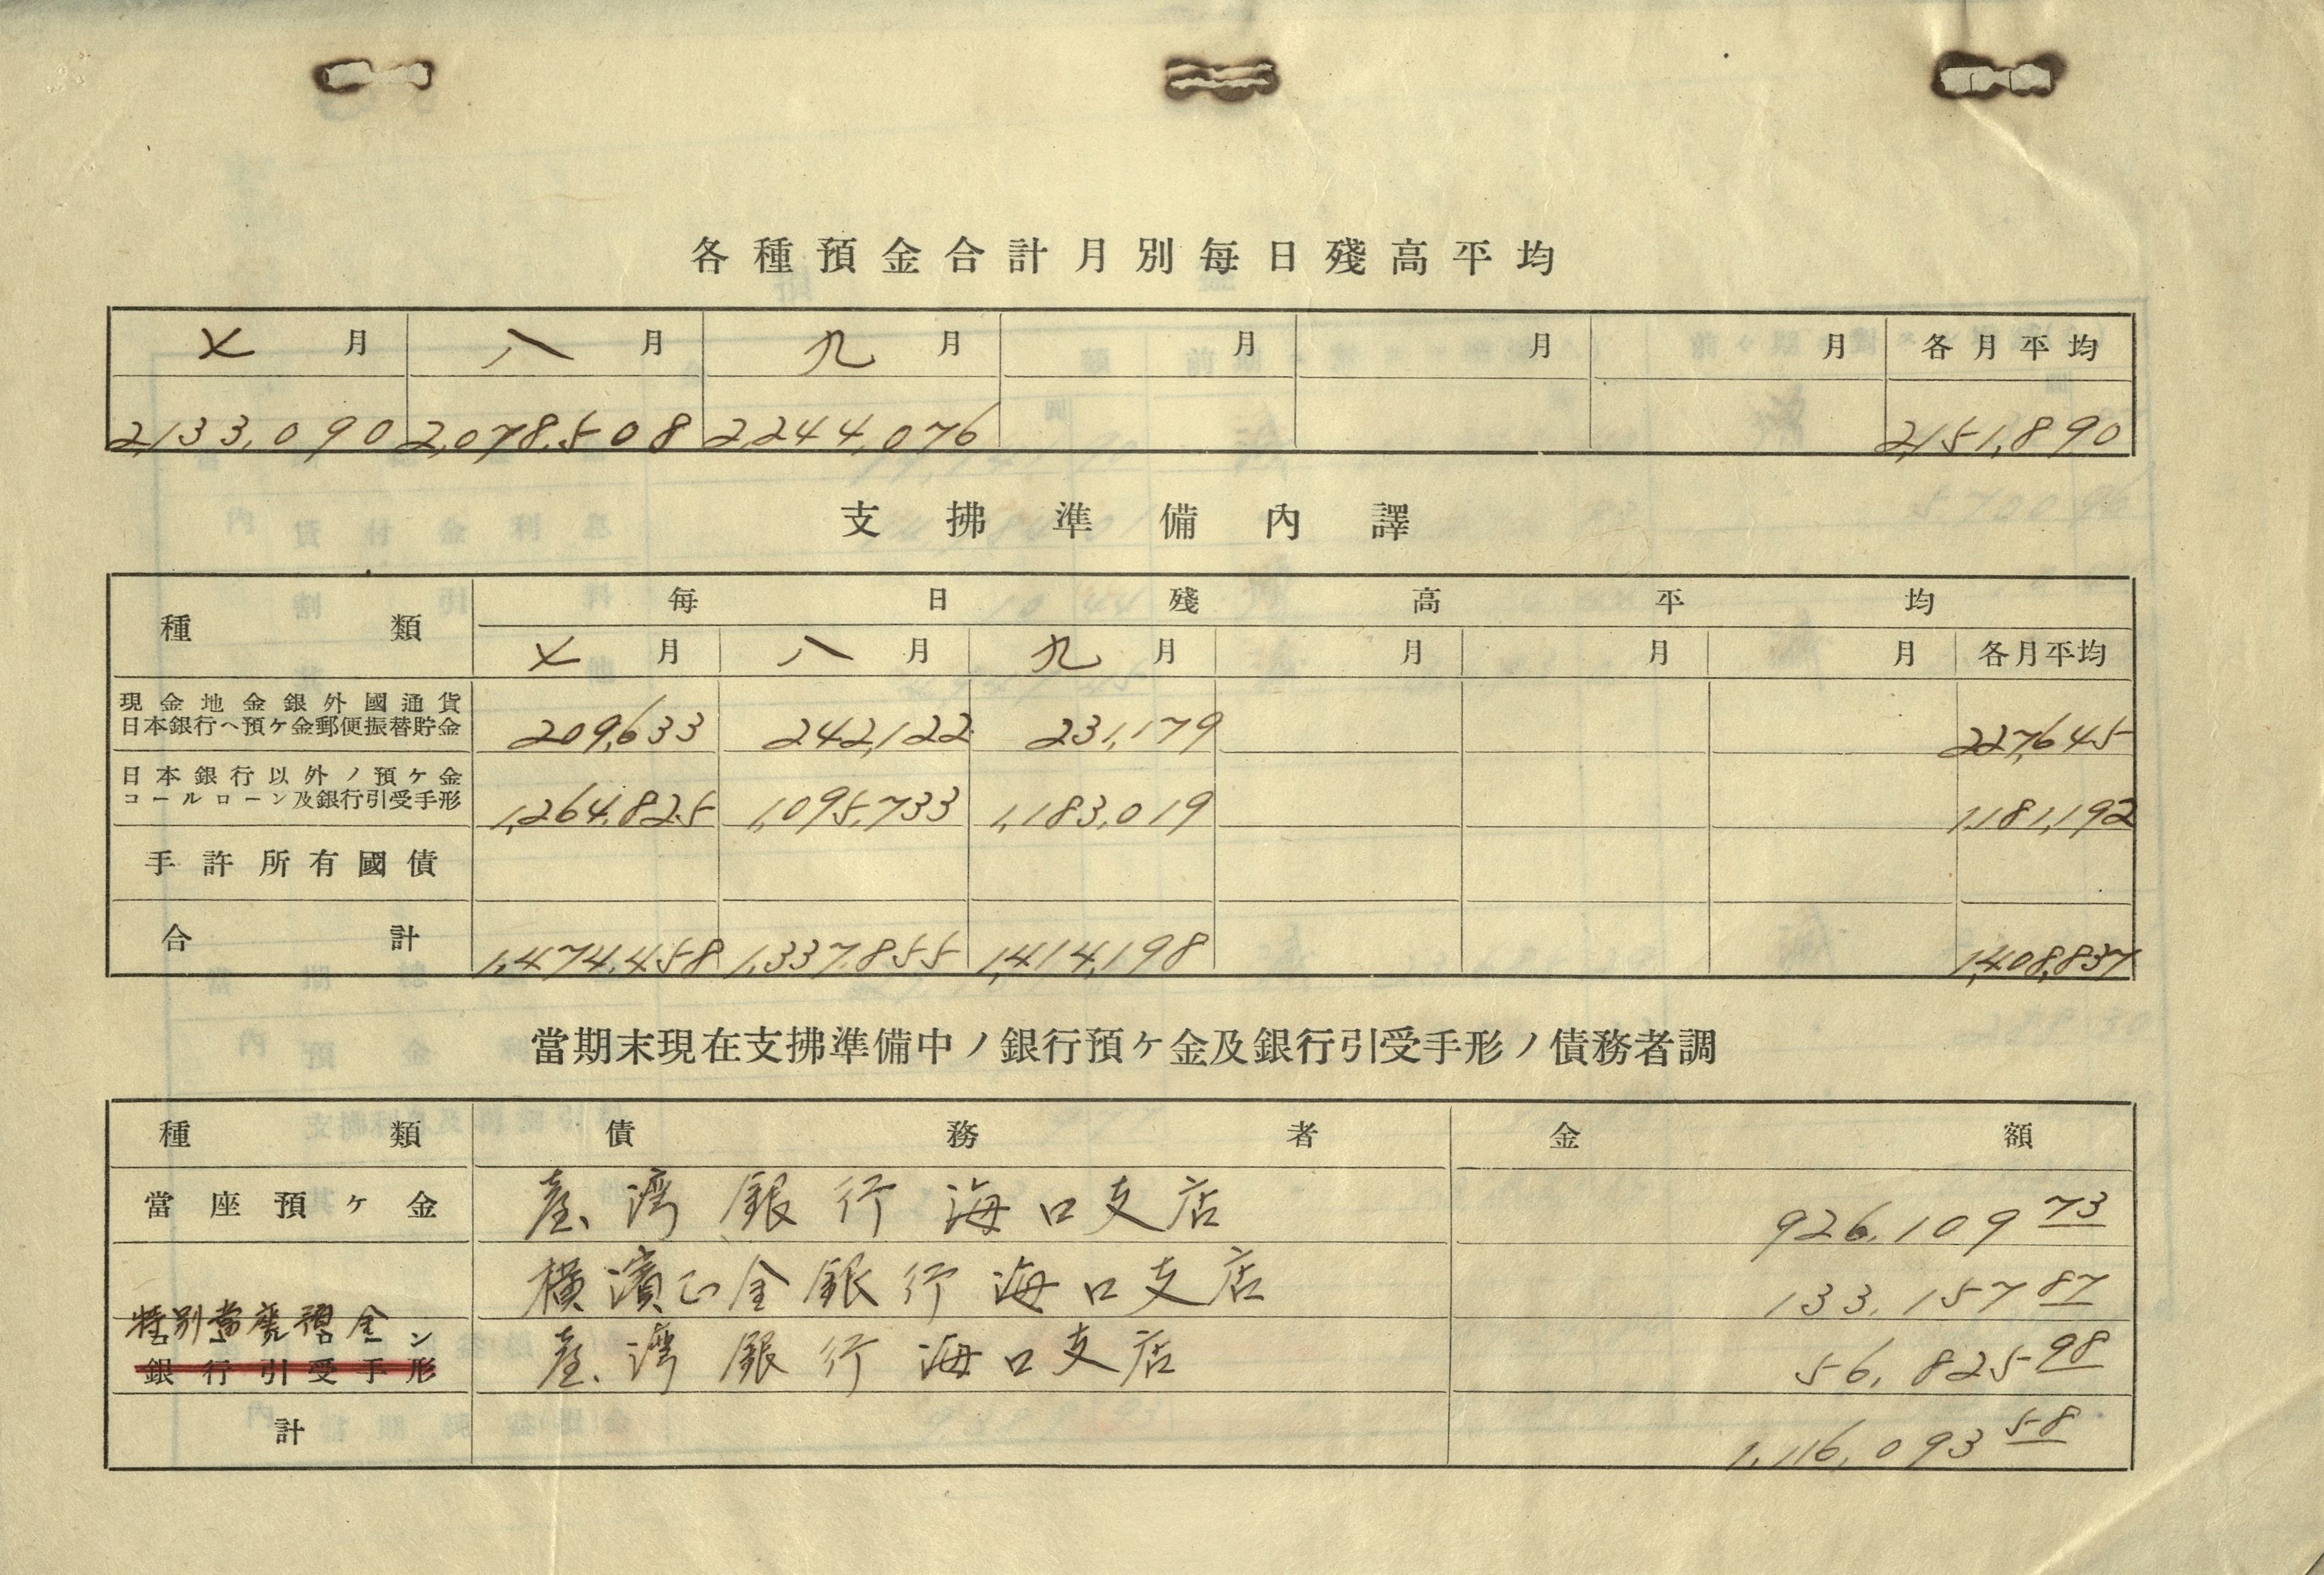 各種預金合計月別每日殘高平均
七月 八月 九月 月 月 月 各月平均
2,133,090 2,078,508 2,244,076 2,151,890
支拂準備內譯
種類 每日殘高平均
七月 八月 九月 月 月 月 各月平均
現金地金銀外國通貨
日本銀行ヘ預ケ金郵便振替貯金 209,633 242,122 231,179 227,645
日本銀行以外ノ預ケ金
コールローン及銀行引受手形 1,264,825 1,095,733 1,183,019 1,181,192
手許所有國債
合計 1,474,458 1,337,855 1,414,198 1,408,837
當期末現在支拂準備中ノ銀行預ケ金及銀行引受手形ノ債務者調
種類 債務者 金額
當座預ケ金 臺灣銀行海口支店 926,109 73
橫濱正金銀行海口支店 133,157 87
特別當座預金 臺灣銀行海口支店 56,825 98
銀行引受手形
計 1,116,093 58